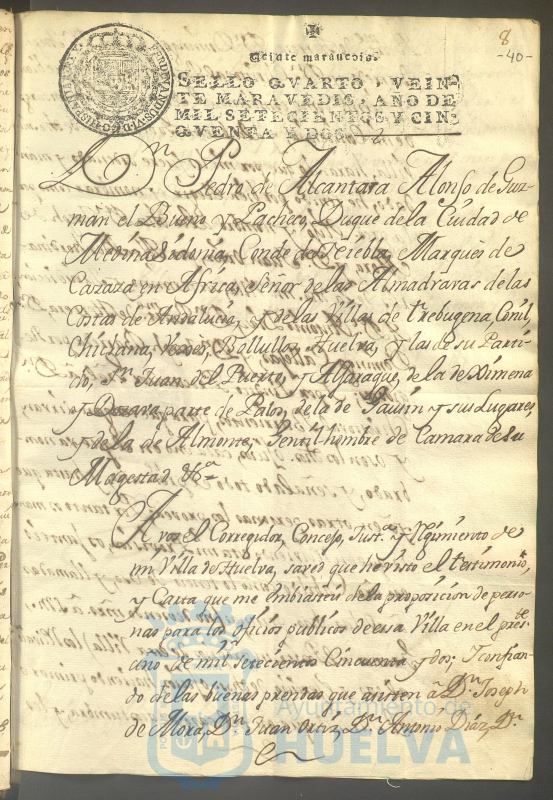 8
-40-
Veinte marauedis.
SELLO QVARTO, VEIN-
TE MARAVEDIS, AÑO DE
MIL SETECIENTOS Y CIN-
QVENTA Y DOS.
Dn. Pedro de Alcantara Alonso de Guz-
man el Bueno y Pacheco, Duque de la Ciudad de
Medina Sidonia, Conde de Niebla, Marquès de
Cazaza en Africa, Señor de las Almadravas de las
Costas de Andalucia, y de las Villas de Trebugena, Conil,
Chiclana, Vexer, Bollullos, Huelva, y las de su Parti-
do, Sn. Juan del Puerto, y Alfaraque, de la de Ximena
y parte de Palos, de la de Gausin y sus Lugares,
y de la de Almonte, Gentilhombre de Camara de Su
Magestad &ca.
A vos el Corregidor, Concejo, Justa. y Regimiento de
mi Villa de Huelva, saved que he visto el testimonio,
y Carta que me embiasteis de la proposicion de perso-
nas para los oficios publicos de essa Villa en el presste.
año de mil Setecientos Cincuenta y dos; Y confian-
do de las buenas prendas que asisten â Dn. Joseph
de Mora, Dn. Juan Ortiz, Dn. Antonio Diaz, Dn.
Ayuntamiento de
HUELVA